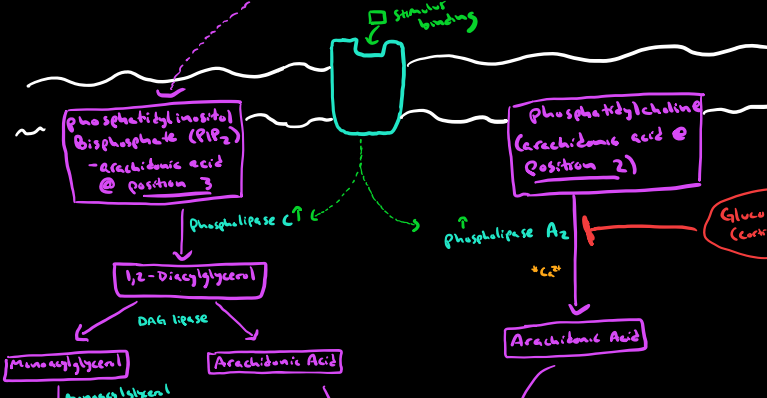 stimulus
binding
phosphatidylinositol
Bisphosphate (PIP2)
-arachidonic acid
@ position 3
phosphatidylcholine
(arachidonic acid @
position 2)
phospholipase C
phospholipase A2
*Ca2+
Gluco
(corti
1,2-Diacylglycerol
DAG lipase
Monoacylglycerol
Arachidonic Acid
Arachidonic Acid
monoacylglycerol